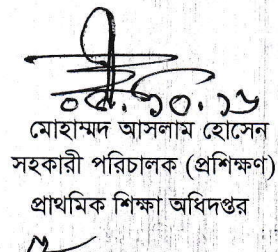 মোহাম্মদ আসলাম হোসেন
সহকারী পরিচালক (প্রশিক্ষণ)
প্রাথমিক শিক্ষা অধিদপ্তর